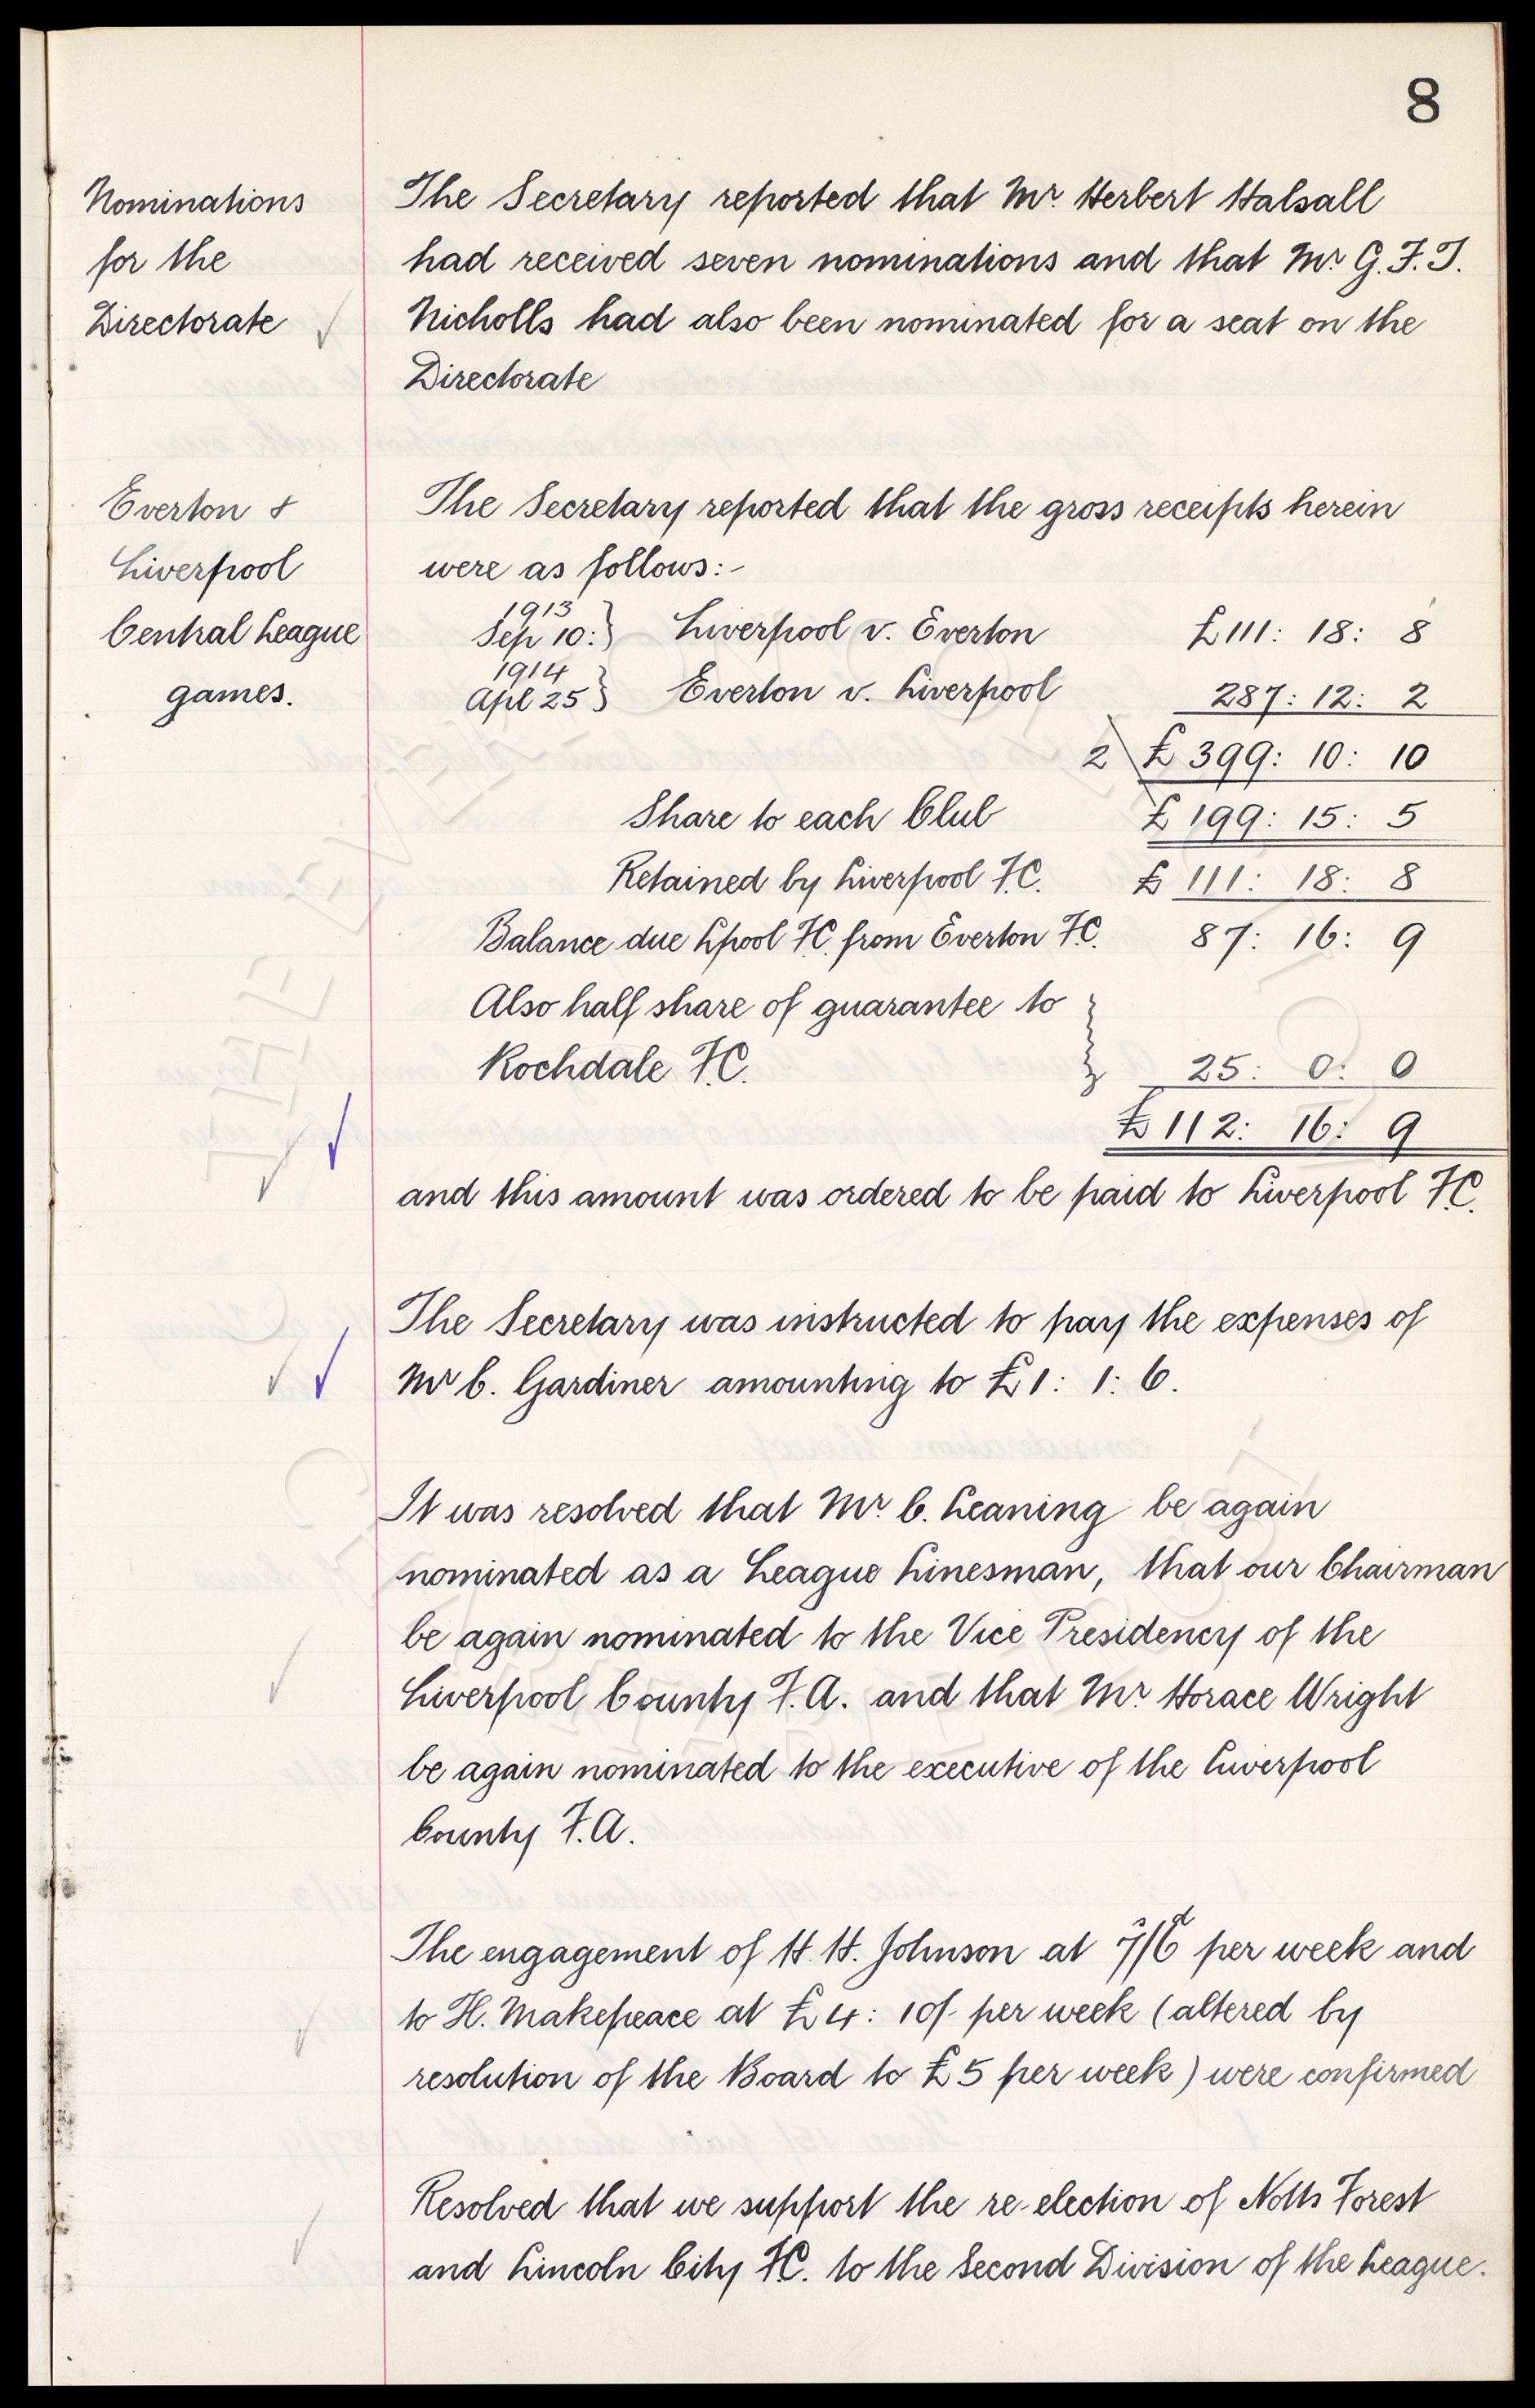 8
Nominations
for the
Directorate
The Secretary reported that Mr. Herbert Halsall
had received seven nominations and that Mr. G. F. T.
Nicholls had also been nominated for a seat on the
Directorate
Everton &
Liverpool
Central League
games.
The Secretary reported that the gross receipts herein
were as follows:-
1913
Sep 10: } Liverpool v. Everton £111: 18: 8
1914
Apl 25 } Everton v. Liverpool 287: 12: 2
2 \ £ 399: 10: 10
Share to each Club £ 199: 15: 5
Retained by Liverpool F.C. £ 111: 18: 8
Balance due Lpool F.C. from Everton F.C. 87: 16: 9
Also half share of guarantee to }
Rochdale F.C. 25: 0: 0
£ 112: 16: 9
and this amount was ordered to be paid to Liverpool F.C.
The Secretary was instructed to pay the expenses of
Mr C. Gardiner amounting to £1: 1: 6.
It was resolved that Mr. C. Leaning be again
nominated as a League Linesman, that our Chairman
be again nominated to the Vice Presidency of the
Liverpool County F.A. and that Mr Horace Wright
be again nominated to the executive of the Liverpool
County F.A.
The engagement of H. H. Johnson at 7s/6d per week and
to H. Makepeace at £4: 10/- per week (altered by
resolution of the Board to £5 per week) were confirmed
Resolved that we support the re-election of Notts Forest
and Lincoln City F.C. to the Second Division of the League.